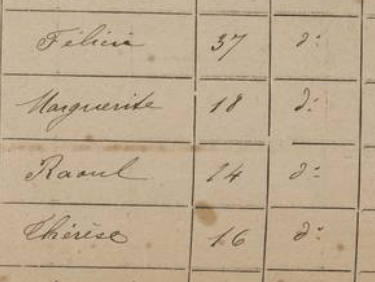 Félicie 37 d°
Marguerite 18 d°
Raoul 14 d°
Thérèse 16 d°